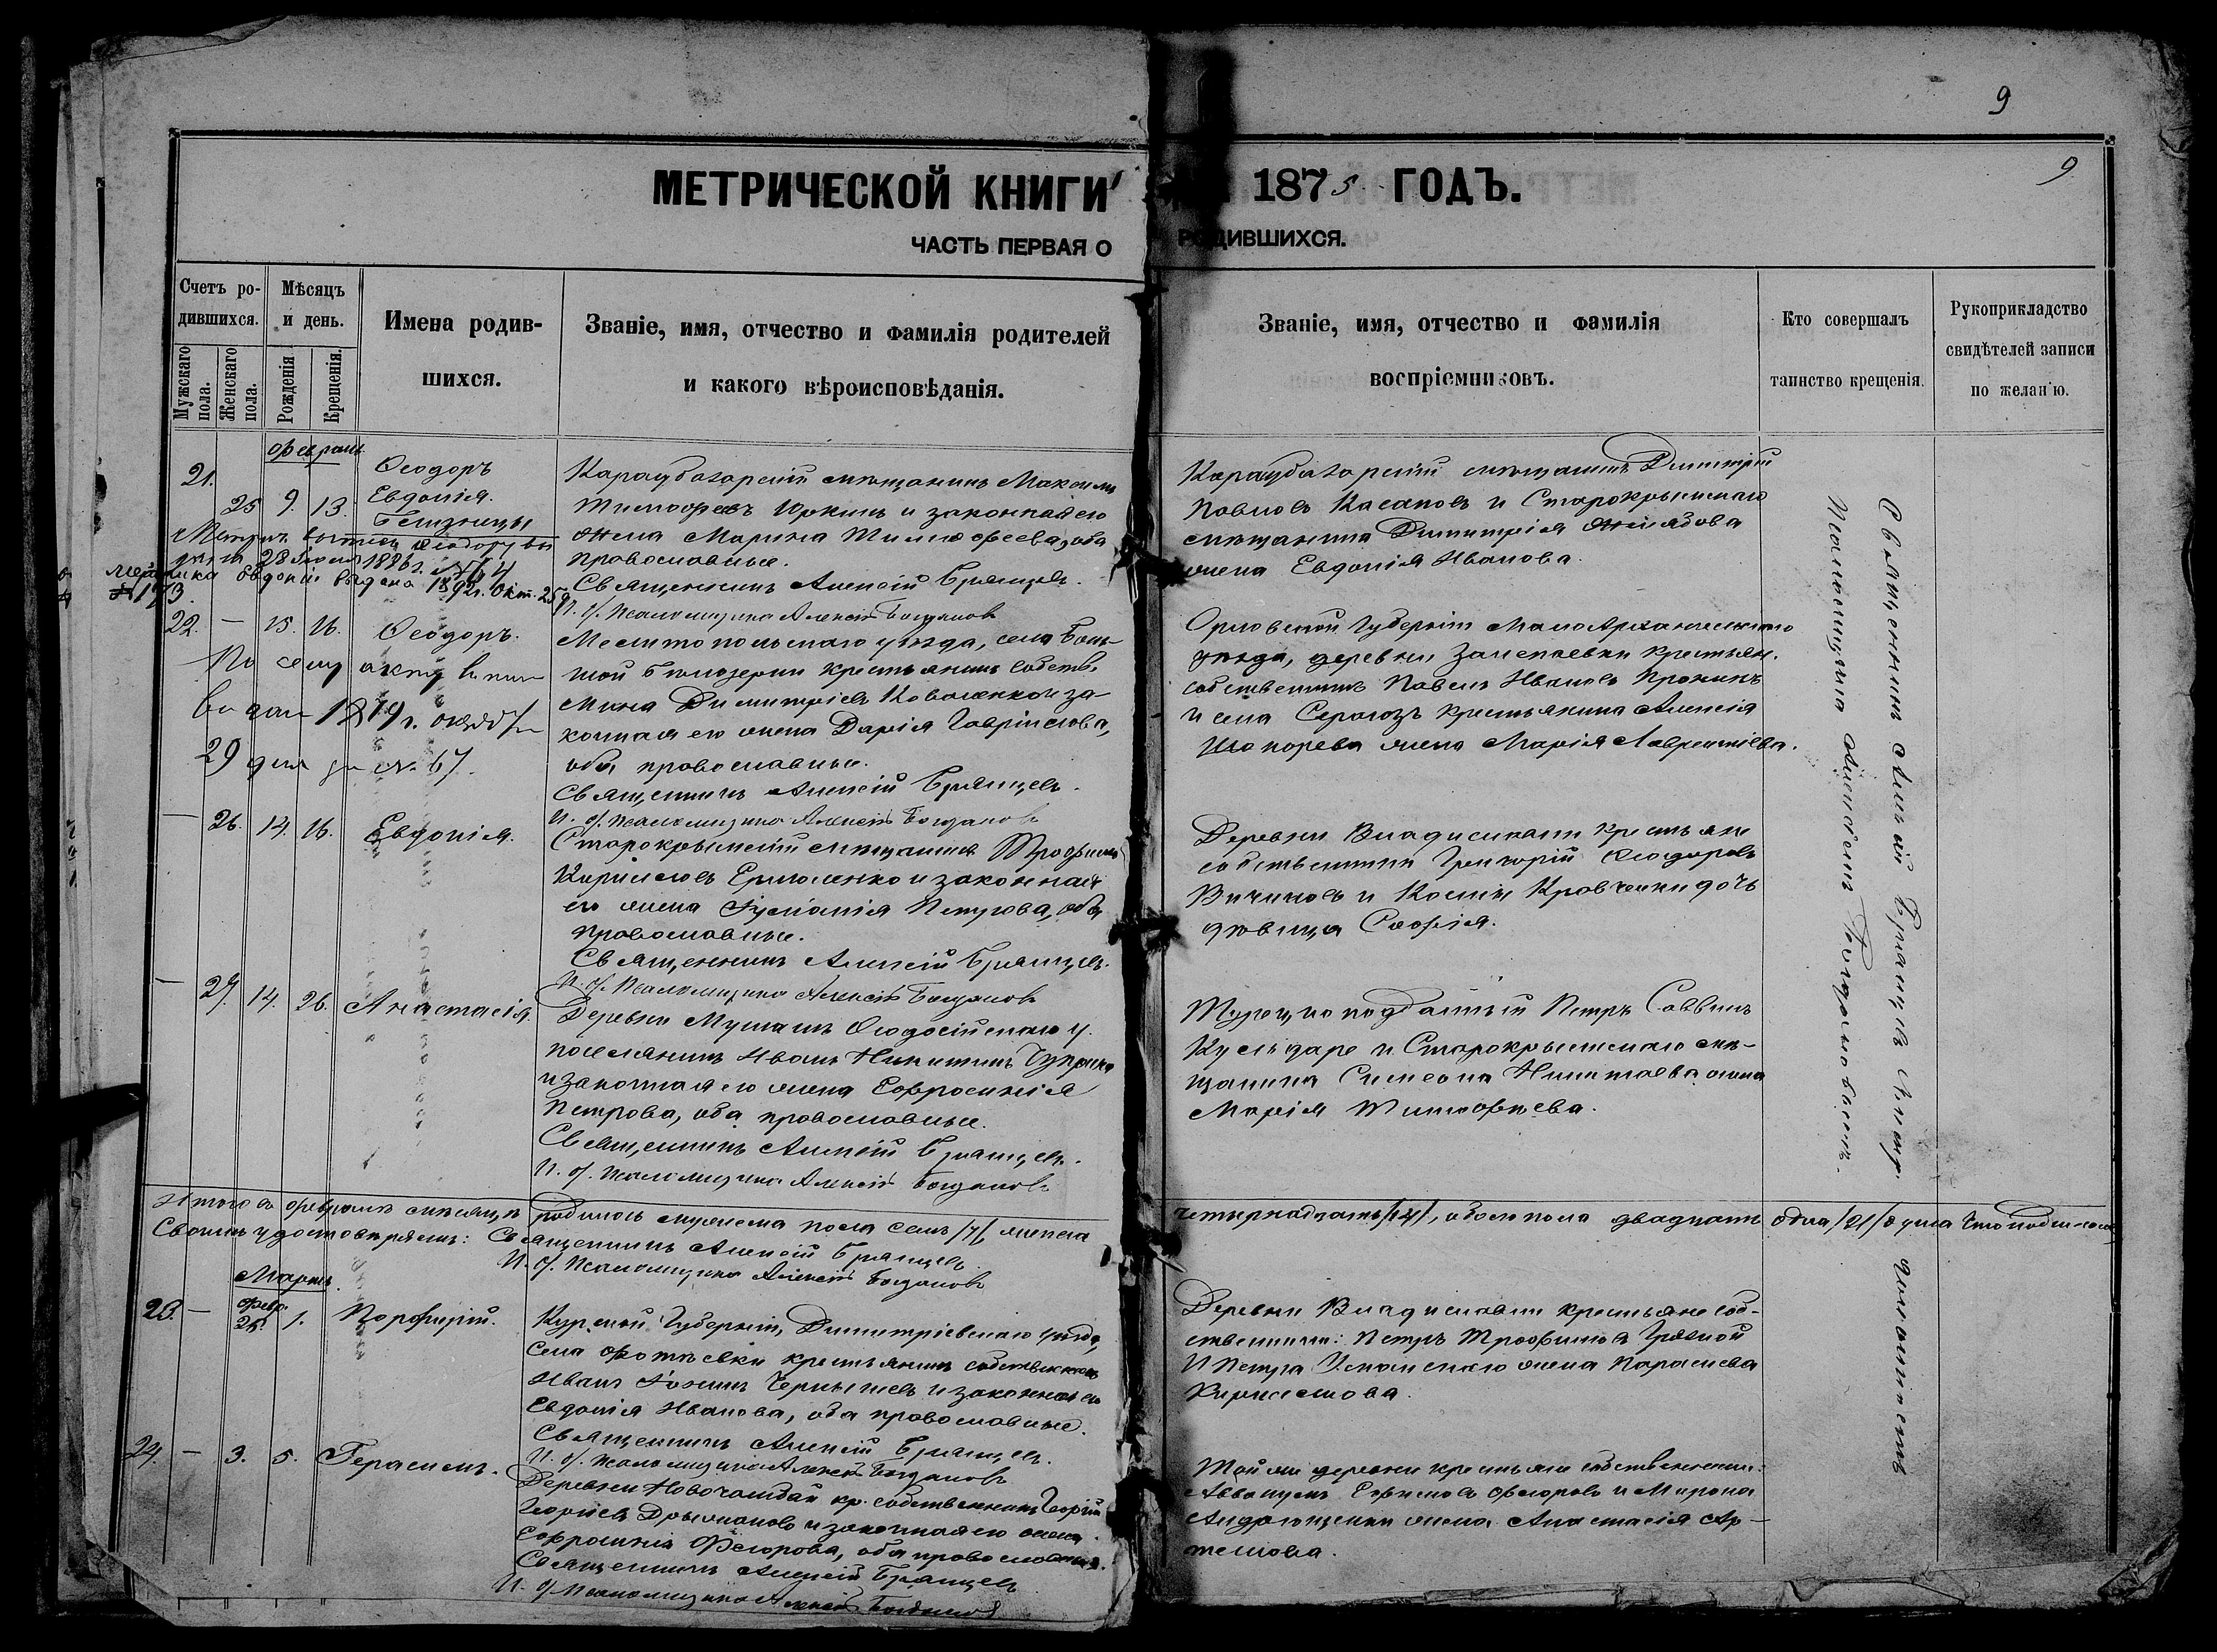 9
9
МЕТРИЧЕСКОЙ КНИГИ 1875 ГОДЪ.
ЧАСТЬ ПЕРВАЯ О РОДИВШИХСЯ.
Счетъ родившихся.
Мужскаго пола.
Женскаго пола.
Мѣсяцъ и день.
Рожденія
Крещенія.
Имена родившихся.
Званіе, имя, отчество и фамилія родителей
и какого вѣроисповѣданія.
Званіе, имя, отчество и фамилія
воспріемниковъ.
Кто совершалъ
таинство крещенія.
Рукоприкладство
свидѣтелей записи
по желанію.
Февраль
21.
25 9. 13.
Ѳеодоръ
Евдокія.
Близнецы
Карасубазарскій мѣщанинъ Максимъ
Тимофеевъ Юркинъ и законная его
жена Марина Тимофеева, оба
православные.
Священникъ Алексій Брянцевъ.
И. д. Псаломщика Алексѣй Богдановъ
Карасубазарскій мѣщанинъ Димитрій
Павловъ Касановъ и Старокрымскаго
мѣщанина Димитрія
жена Евдокія Иванова.
28 Іюля 1886 г.
Метрика Евдокіи выдана 1892 г. Окт. 25
22. — 15. 16. Ѳеодоръ.
По сему акту
выдан 1879 г.
29 дня за № 67.
Мелитопольскаго уѣзда, села Боль-
шой Бѣлозерки крестьянинъ собств.
Мина Димитріевъ Коваленко и за-
конная его жена Дарія Гавріилова,
оба православные.
Священникъ Алексій Брянцевъ.
И. д. Псаломщика Алексѣй Богдановъ
Орловской Губерніи Малоархангельскаго
уѣзда, деревни крестьян.
собственникъ Павелъ Ивановъ Пронинъ
и села Серогозъ крестьянина Алексія
жена Марія Лаврентіева.
— 26. 14. 16. Евдокія.
Старокрымскій мѣщанинъ Трофимъ
Кирилловъ Ермоленко и законная
его жена Іуліанія Петрова, оба
православные.
Священникъ Алексій Брянцевъ.
И. д. Псаломщика Алексѣй Богдановъ
Деревни Владиславки крестьяне
собственники Григорій Ѳеодоровъ
и Космы Кравченки дочь
дѣвица Софія.
— 27. 14. 26. Анастасія.
Деревни Ѳеодосійскаго у.
поселянинъ Иванъ Никитинъ
и законная его жена Евфросинія
Петрова, оба православные.
Священникъ Алексій Брянцевъ.
И. д. Псаломщика Алексѣй Богдановъ
Турецко подданный Петръ Саввинъ
и Старокрымскаго мѣ-
щанина Симеона жена
Марія Тимофеева.
Священникъ Алексій Брянцевъ съ и. д.
Псаломщика Алексѣемъ Богдановымъ.
Итого въ февралѣ мѣсяцѣ родилось мужеска пола семь /7/, женска четырнадцать /14/, обоего пола двадцать одна /21/ душа что подписомъ
Своимъ удостовѣряемъ: Священникъ Алексій Брянцевъ
И. д. Псаломщика Алексѣй Богдановъ
Мартъ.
23. — Февр. 25. 1. Порфирій.
Курской Губерніи, Димитріевскаго уѣзда,
села крестьянинъ собственникъ
Иванъ и законная его
Евдокія Иванова, оба православные.
Священникъ Алексій Брянцевъ.
И. д. Псаломщика Алексѣй Богдановъ
Деревни Владиславки крестьяне соб-
ственники: Петръ Трофимовъ Грязной
и Петра жена Параскева
Кириллова.
24. — 3. 5. Герасимъ.
Деревни кр. собственникъ Георгій
и законная его жена
Евфросинія Ѳедорова, оба православные.
Священникъ Алексій Брянцевъ
И. д. Псаломщика Алексѣй Богдановъ
Той же деревни крестьяне собственники:
Аввакумъ Ефимовъ и Мирона
жена Анастасія Ар-
темова.